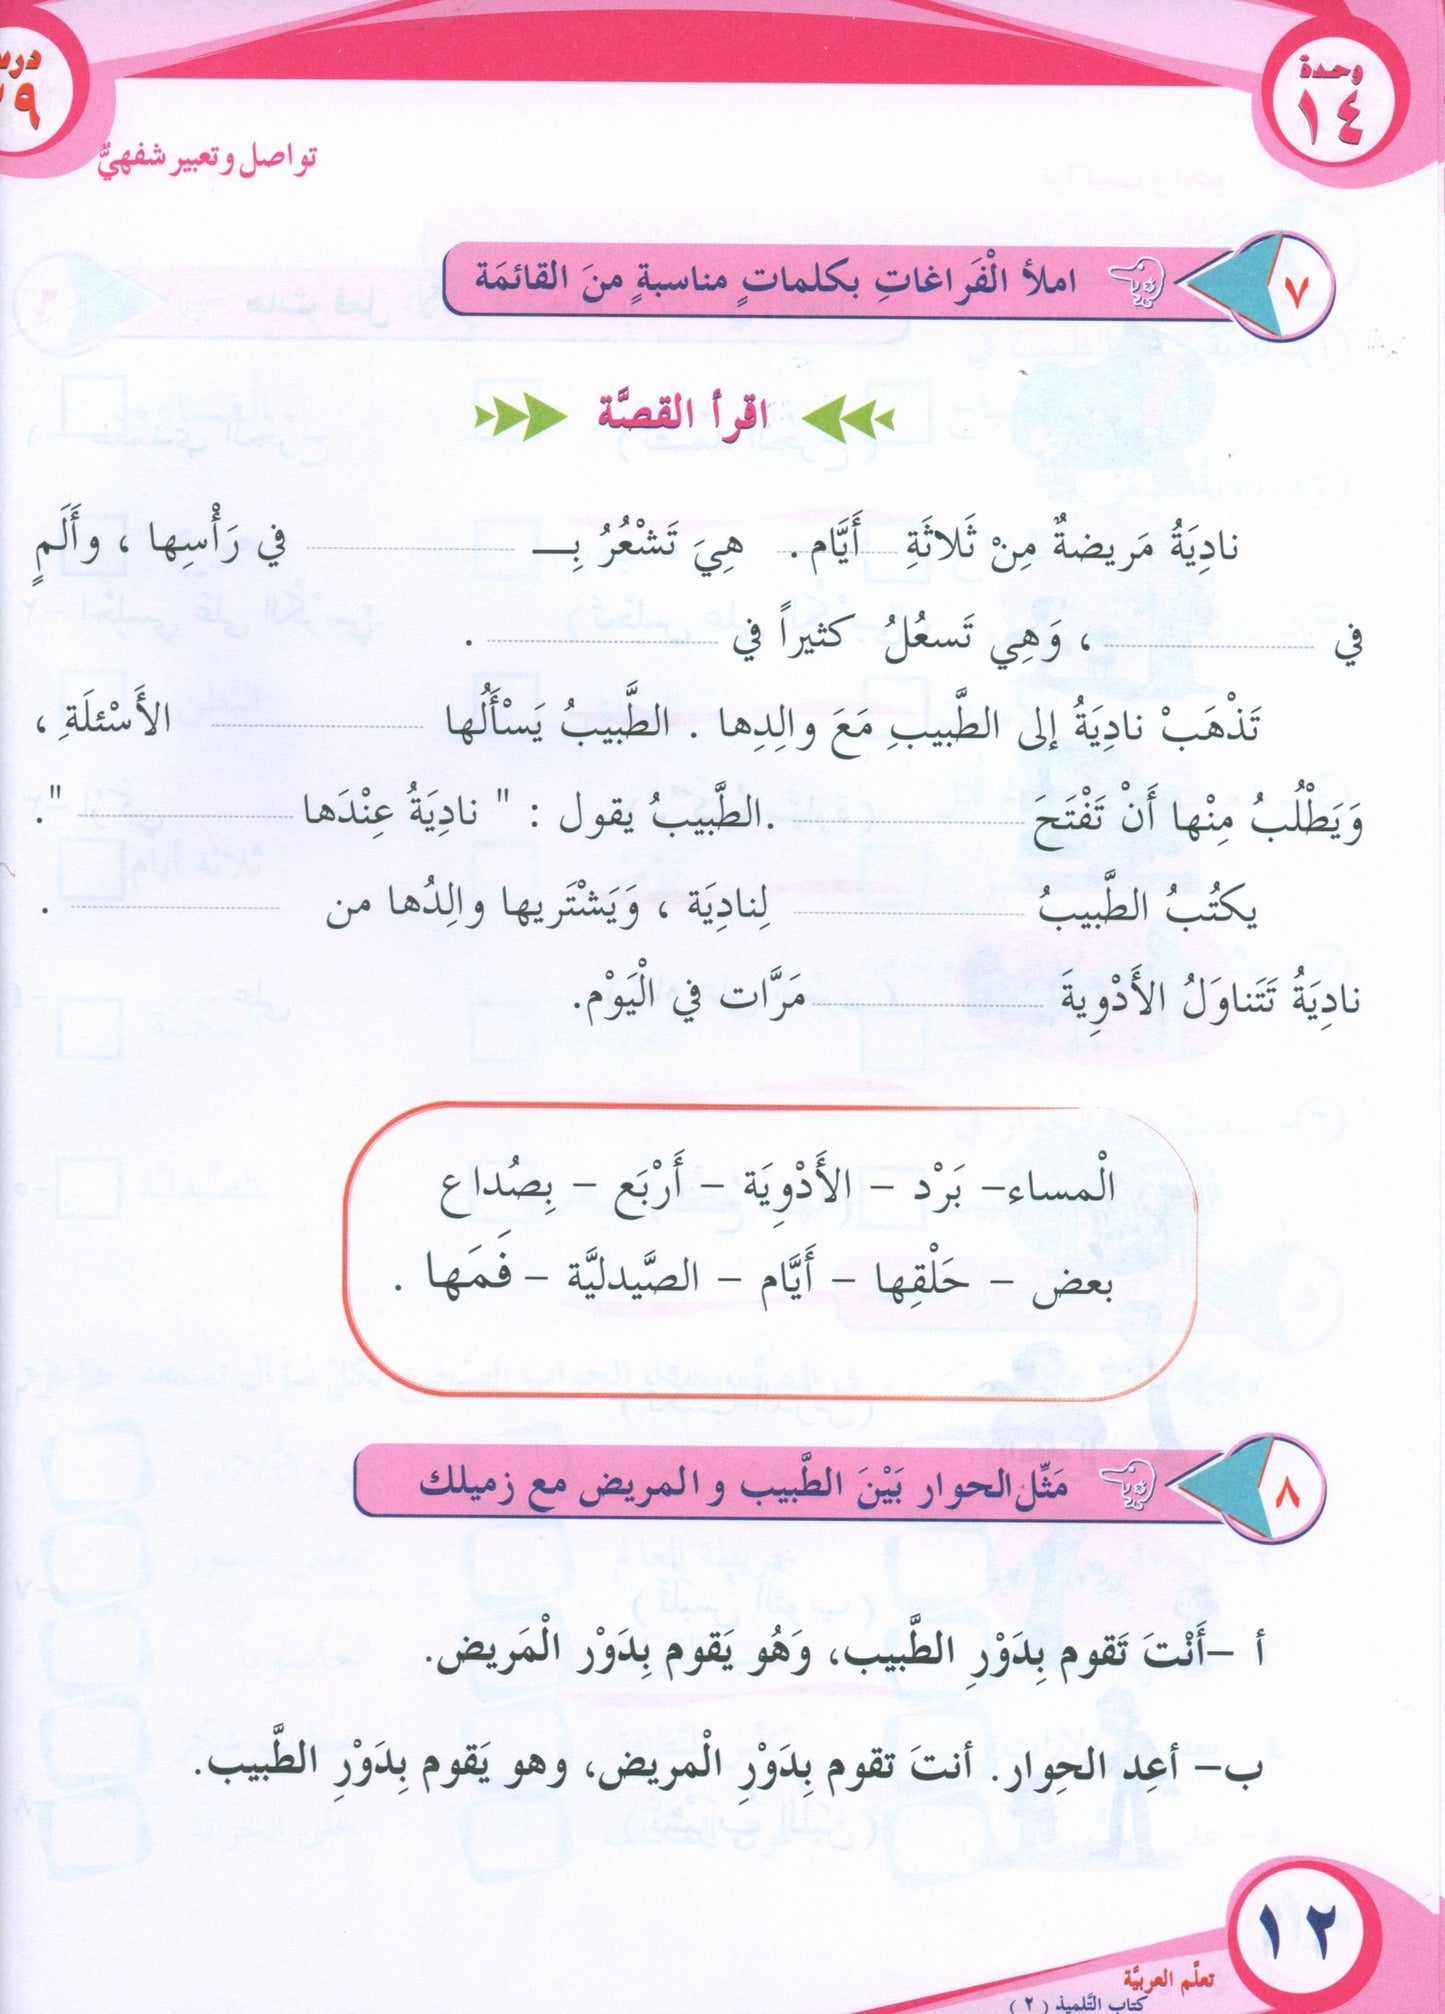 وحدة
١٤
تواصل وتعبير شفهيٌّ
٧
املأ الْفَراغاتِ بكلماتٍ مناسبةٍ منَ القائمَة
اقرأ القصَّة
ناديَةُ مَريضةٌ مِنْ ثَلاثَةِ أَيَّام . هِيَ تَشْعُرُ بِــ ........ في رَأْسِها ، وأَلَمٍ
في ........ ، وَهِي تَسعُلُ كثيراً في ........ .
تَذْهَبْ نادِيَةُ إلى الطَّبيبِ مَعَ والِدِها . الطَّبيبُ يَسْأَلُها ........ الأَسْئلَةِ ،
وَيَطْلُبُ مِنْها أَنْ تَفْتَحَ ........ .الطَّبيبُ يقول : " نادِيَةُ عِنْدَها ........ ".
يكتُبُ الطَّبيبُ ........ لِنادِيَة ، وَيَشْتَريها والِدُها من ........ .
نادِيَةُ تَتَناوَلُ الأَدْوِيةَ ........ مَرَّات في الْيَوْم.
الْمساء– بَرْد – الأَدْوِيَة – أَرْبَع – بِصُداع
بعض – حَلْقِها – أَيَّام – الصَّيدليَّة – فَمَها .
٨
مَثِّل الحوار بَيْنَ الطَّبيب و المريض مع زميلك
أ –أَنْتَ تَقوم بِدَوْرِ الطَّبيب، وَهُو يَقوم بِدَوْر الْمَريض.
ب– أعِد الحِوار. أنتَ تقوم بِدَوْرِ الْمريض، وهو يَقوم بِدَوْرِ الطَّبيب.
١٢
تعلَّم العربيَّة
كتاب التَّلميذ ( ٢ )